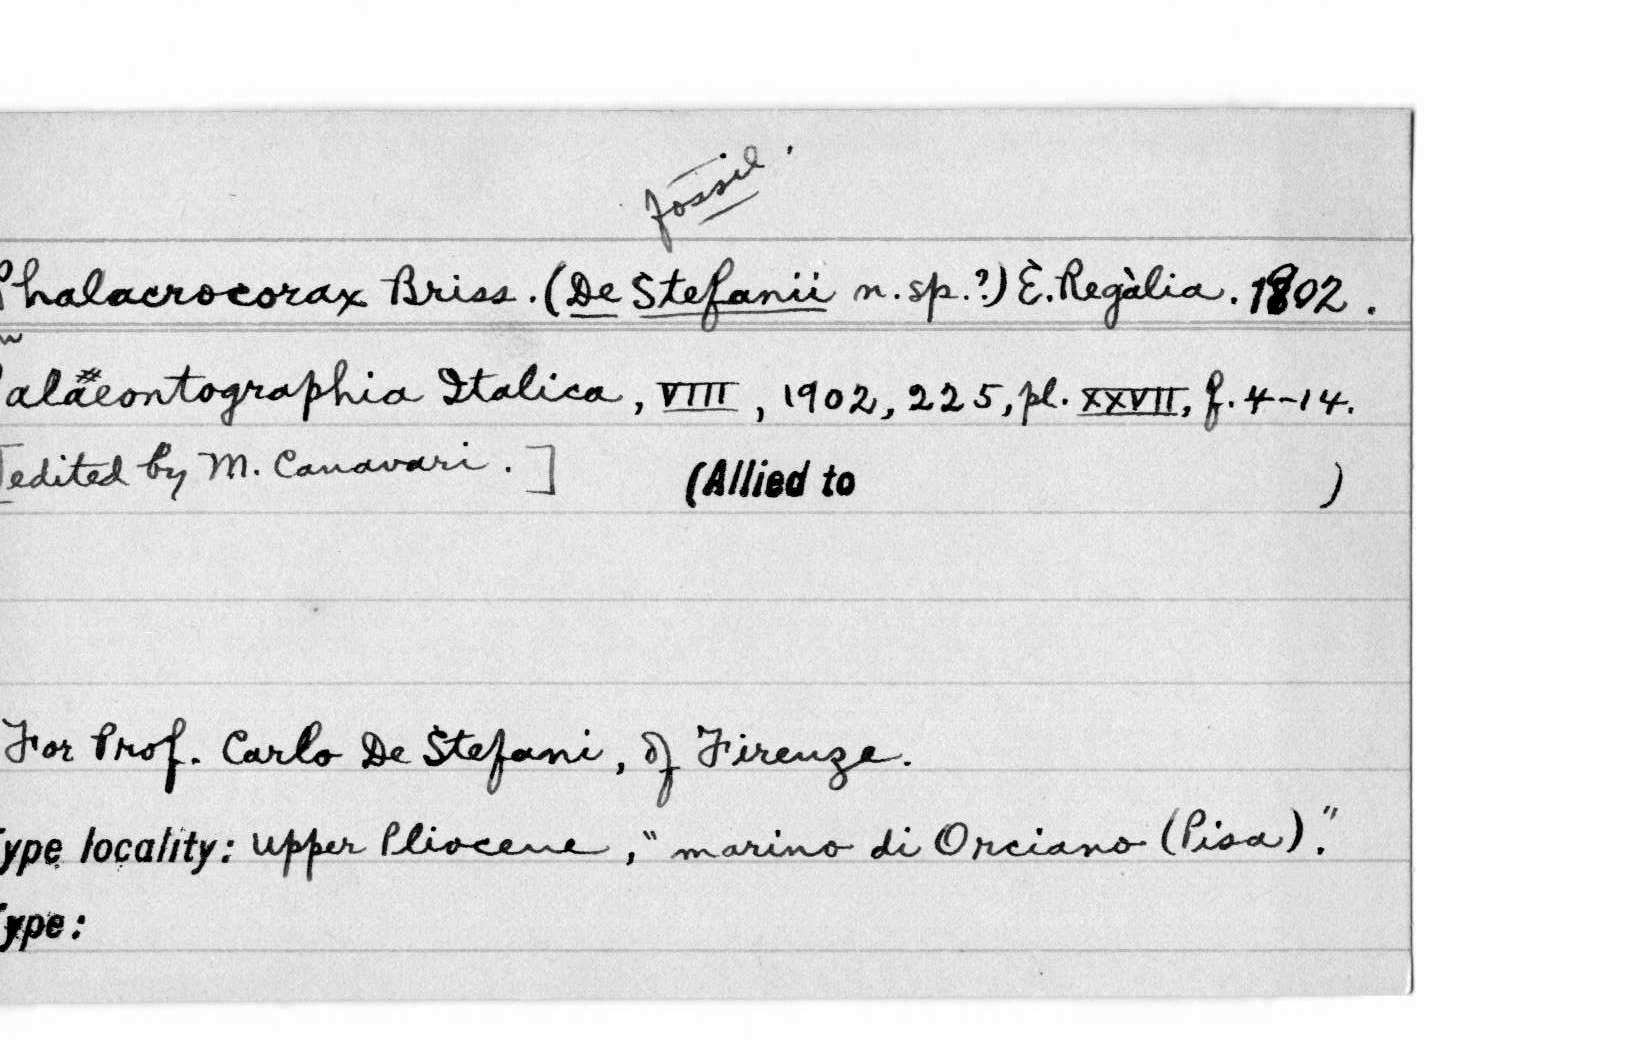 fossil.
Phalacrocorax Briss. (De Stefanii n. sp.?) È. Regàlia. 1802.
alaeontographia Italica, VIII, 1902, 225, pl. XXVII, f. 4-14.
[edited by M. Canavari.] (Allied to )
For Prof. Carlo De Stefani, of Firenze.
ype locality: Upper Pliocene, "marino di Orciano (Pisa)."
ype: